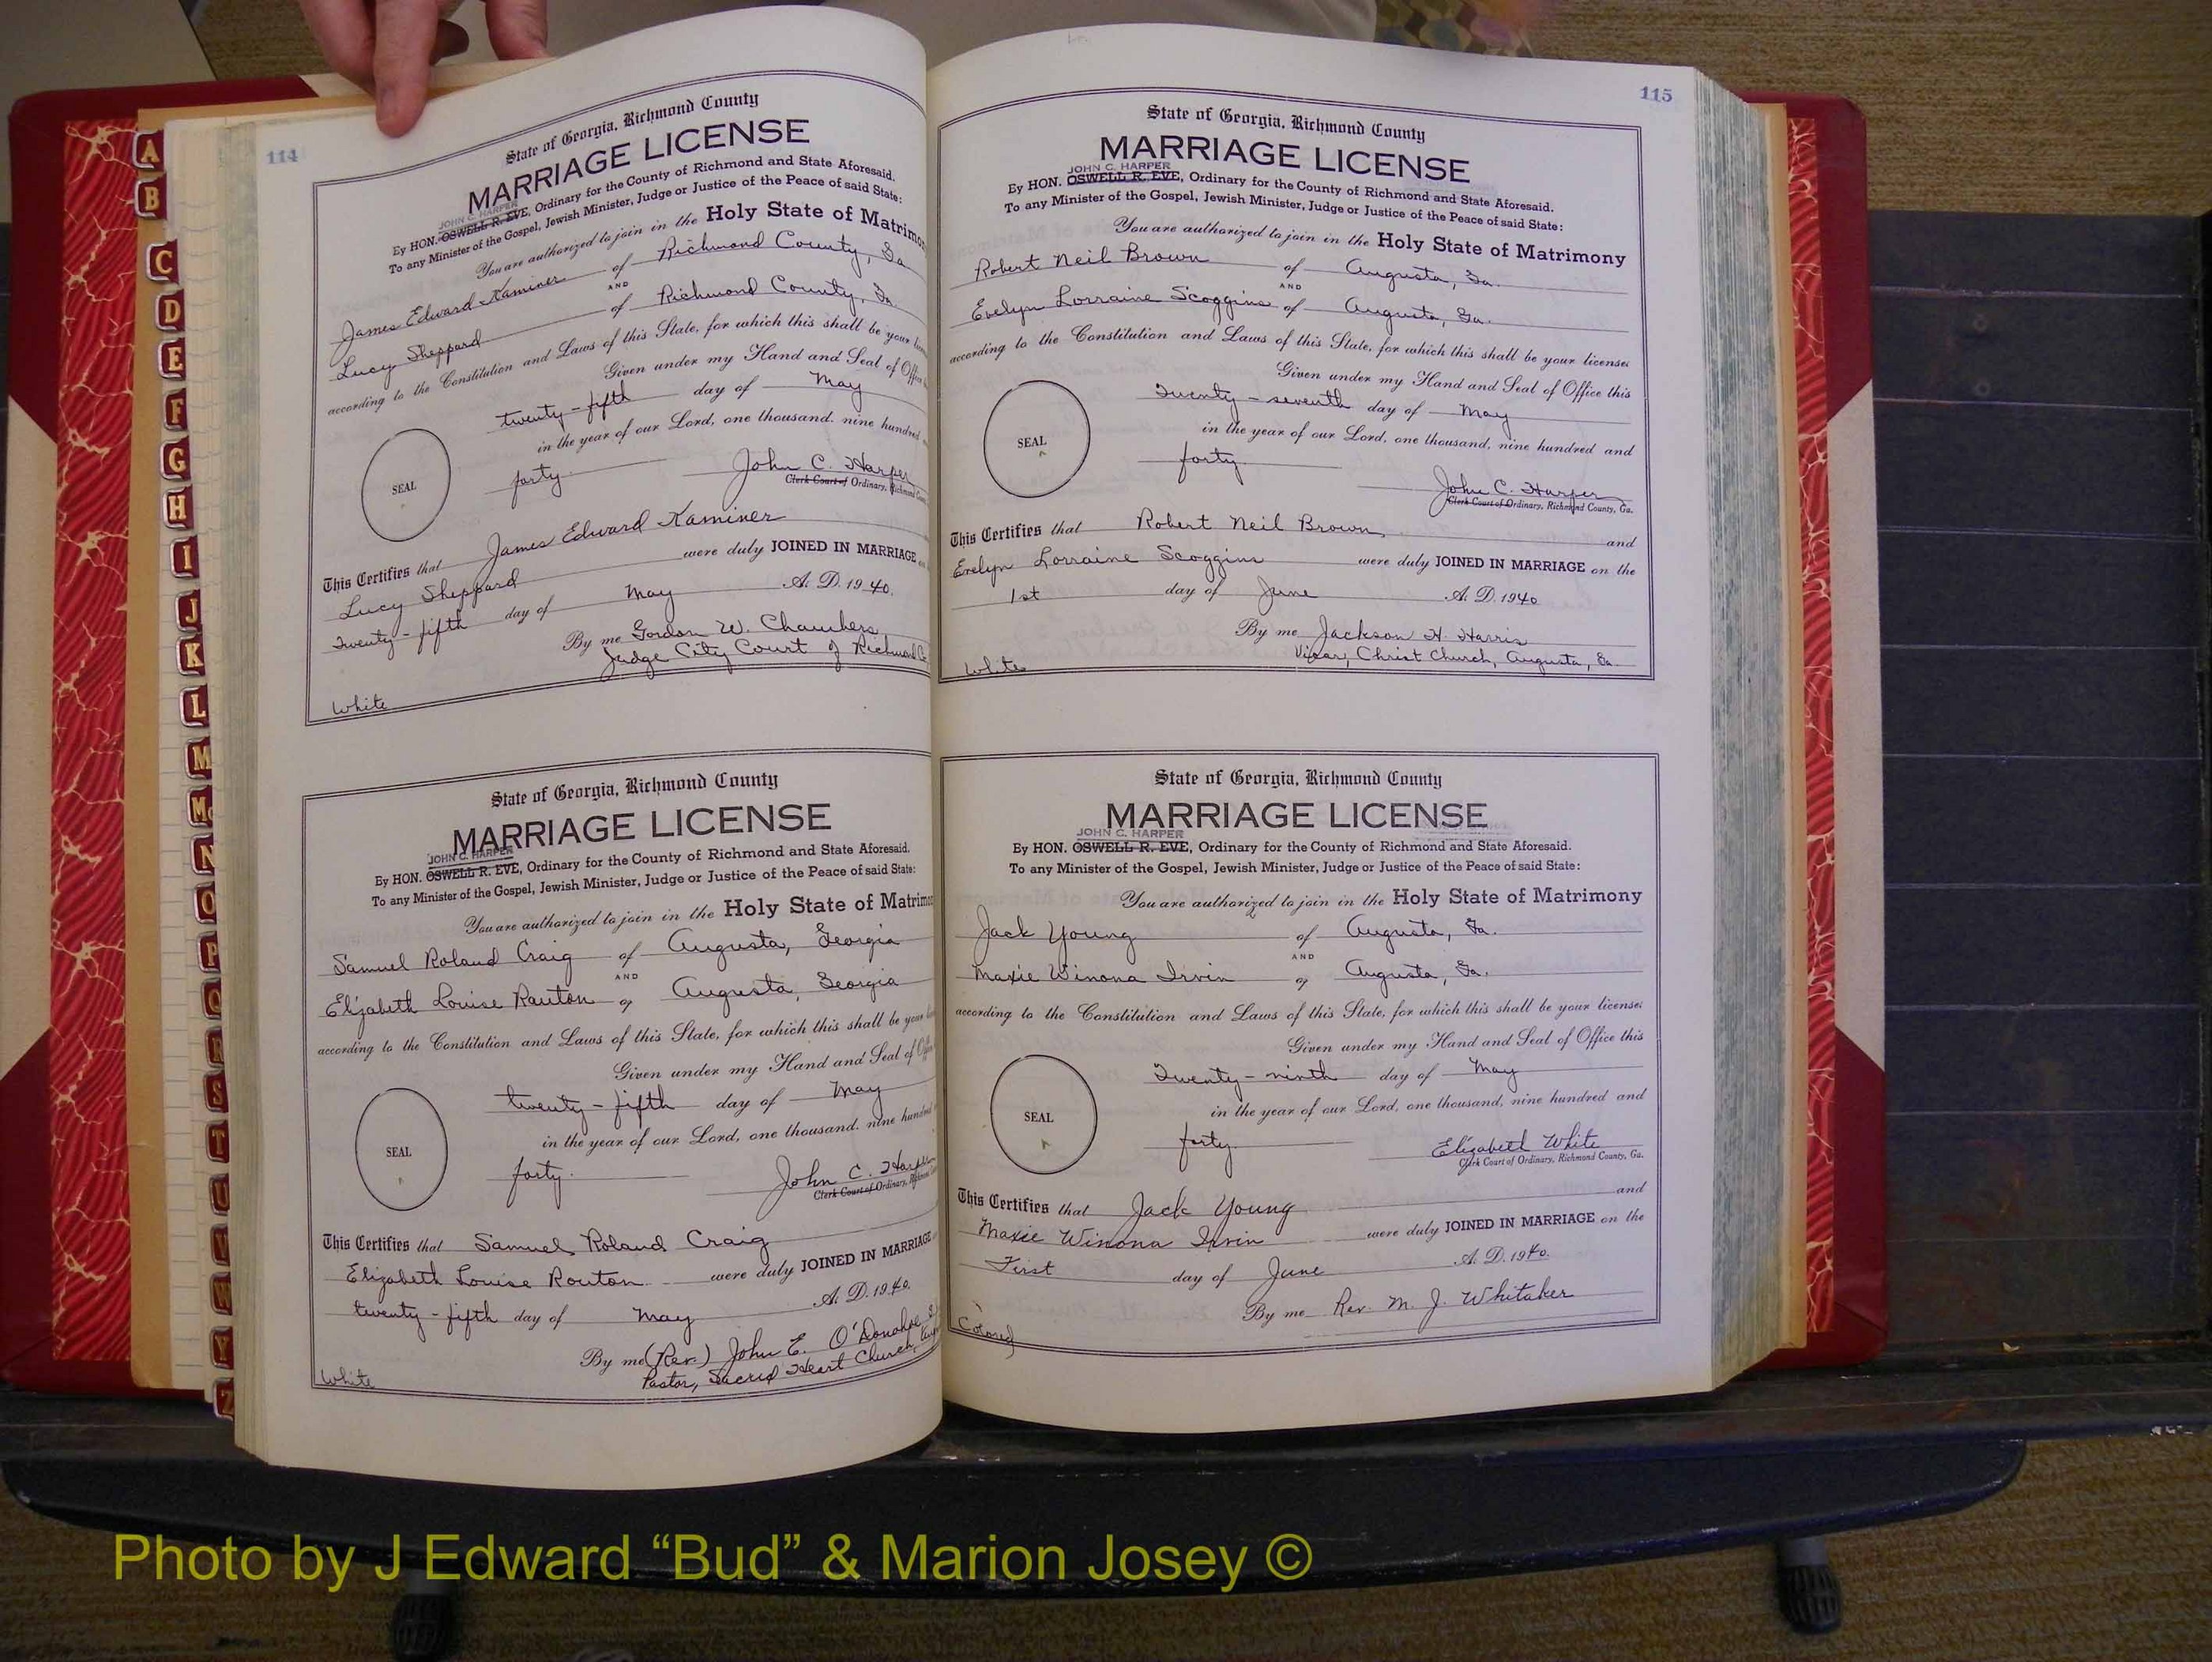 114
State of Georgia, Richmond County
MARRIAGE LICENSE
JOHN C. HARPER
By HON. OSWELL R. EVE, Ordinary for the County of Richmond and State Aforesaid.
To any Minister of the Gospel, Jewish Minister, Judge or Justice of the Peace of said State:
You are authorized to join in the Holy State of Matrimo
James Edward Kaminer of Richmond County, Ga
AND
Lucy Sheppard of Richmond County, Ga.
according to the Constitution and Laws of this State, for which this shall be your
Given under my Hand and Seal of Office
twenty-fifth day of May
in the year of our Lord, one thousand, nine hundred
SEAL
forty. John C. Harper
Clerk Court of Ordinary, Richmond
This Certifies that James Edward Kaminer
Lucy Sheppard were duly JOINED IN MARRIAGE
Twenty-fifth day of May A. D. 1940.
By me Gordon W. Chambers
Judge City Court of Richmond
White
State of Georgia, Richmond County
MARRIAGE LICENSE
JOHN C. HARPER
By HON. OSWELL R. EVE, Ordinary for the County of Richmond and State Aforesaid.
To any Minister of the Gospel, Jewish Minister, Judge or Justice of the Peace of said State:
You are authorized to join in the Holy State of Matrimo
Samuel Roland Craig of Augusta, Georgia
AND
Elizabeth Louise Rauton of Augusta, Georgia
according to the Constitution and Laws of this State, for which this shall be your
Given under my Hand and Seal of
twenty-fifth day of May
in the year of our Lord, one thousand, nine hundred
SEAL
forty. John C. Harper
Clerk Court of Ordinary,
This Certifies that Samuel Roland Craig
Elizabeth Louise Routon were duly JOINED IN MARRIAGE
twenty-fifth day of May A. D. 1940.
By me (Rev.) John E. O'Donohoe
Pastor, Sacred Heart Church,
White
115
State of Georgia, Richmond County
MARRIAGE LICENSE
JOHN C. HARPER
By HON. OSWELL R. EVE, Ordinary for the County of Richmond and State Aforesaid.
To any Minister of the Gospel, Jewish Minister, Judge or Justice of the Peace of said State:
You are authorized to join in the Holy State of Matrimony
Robert Neil Brown of Augusta, Ga.
AND
Evelyn Lorraine Scoggins of Augusta, Ga.
according to the Constitution and Laws of this State, for which this shall be your license:
Given under my Hand and Seal of Office this
Twenty-seventh day of May
in the year of our Lord, one thousand, nine hundred and
SEAL
forty. John C. Harper
Clerk Court of Ordinary, Richmond County, Ga.
This Certifies that Robert Neil Brown and
Evelyn Lorraine Scoggins were duly JOINED IN MARRIAGE on the
1st day of June A. D. 1940
By me Jackson H. Harris
Vicar, Christ Church, Augusta, Ga.
White
State of Georgia, Richmond County
MARRIAGE LICENSE
JOHN C. HARPER
By HON. OSWELL R. EVE, Ordinary for the County of Richmond and State Aforesaid.
To any Minister of the Gospel, Jewish Minister, Judge or Justice of the Peace of said State:
You are authorized to join in the Holy State of Matrimony
Jack Young of Augusta, Ga.
AND
Maxie Winona Irvin of Augusta, Ga.
according to the Constitution and Laws of this State, for which this shall be your license:
Given under my Hand and Seal of Office this
Twenty-ninth day of May
in the year of our Lord, one thousand, nine hundred and
SEAL
forty. Elizabeth White
Clerk Court of Ordinary, Richmond County, Ga.
This Certifies that Jack Young and
Maxie Winona Irvin were duly JOINED IN MARRIAGE on the
First day of June A. D. 1940.
By me Rev. M. J. Whitaker
Colored
A
B
C
D
E
F
G
H
I
J
K
L
M
Mc
N
O
P
Q
R
S
T
U
V
W
Y
Z
Photo by J Edward “Bud” & Marion Josey ©